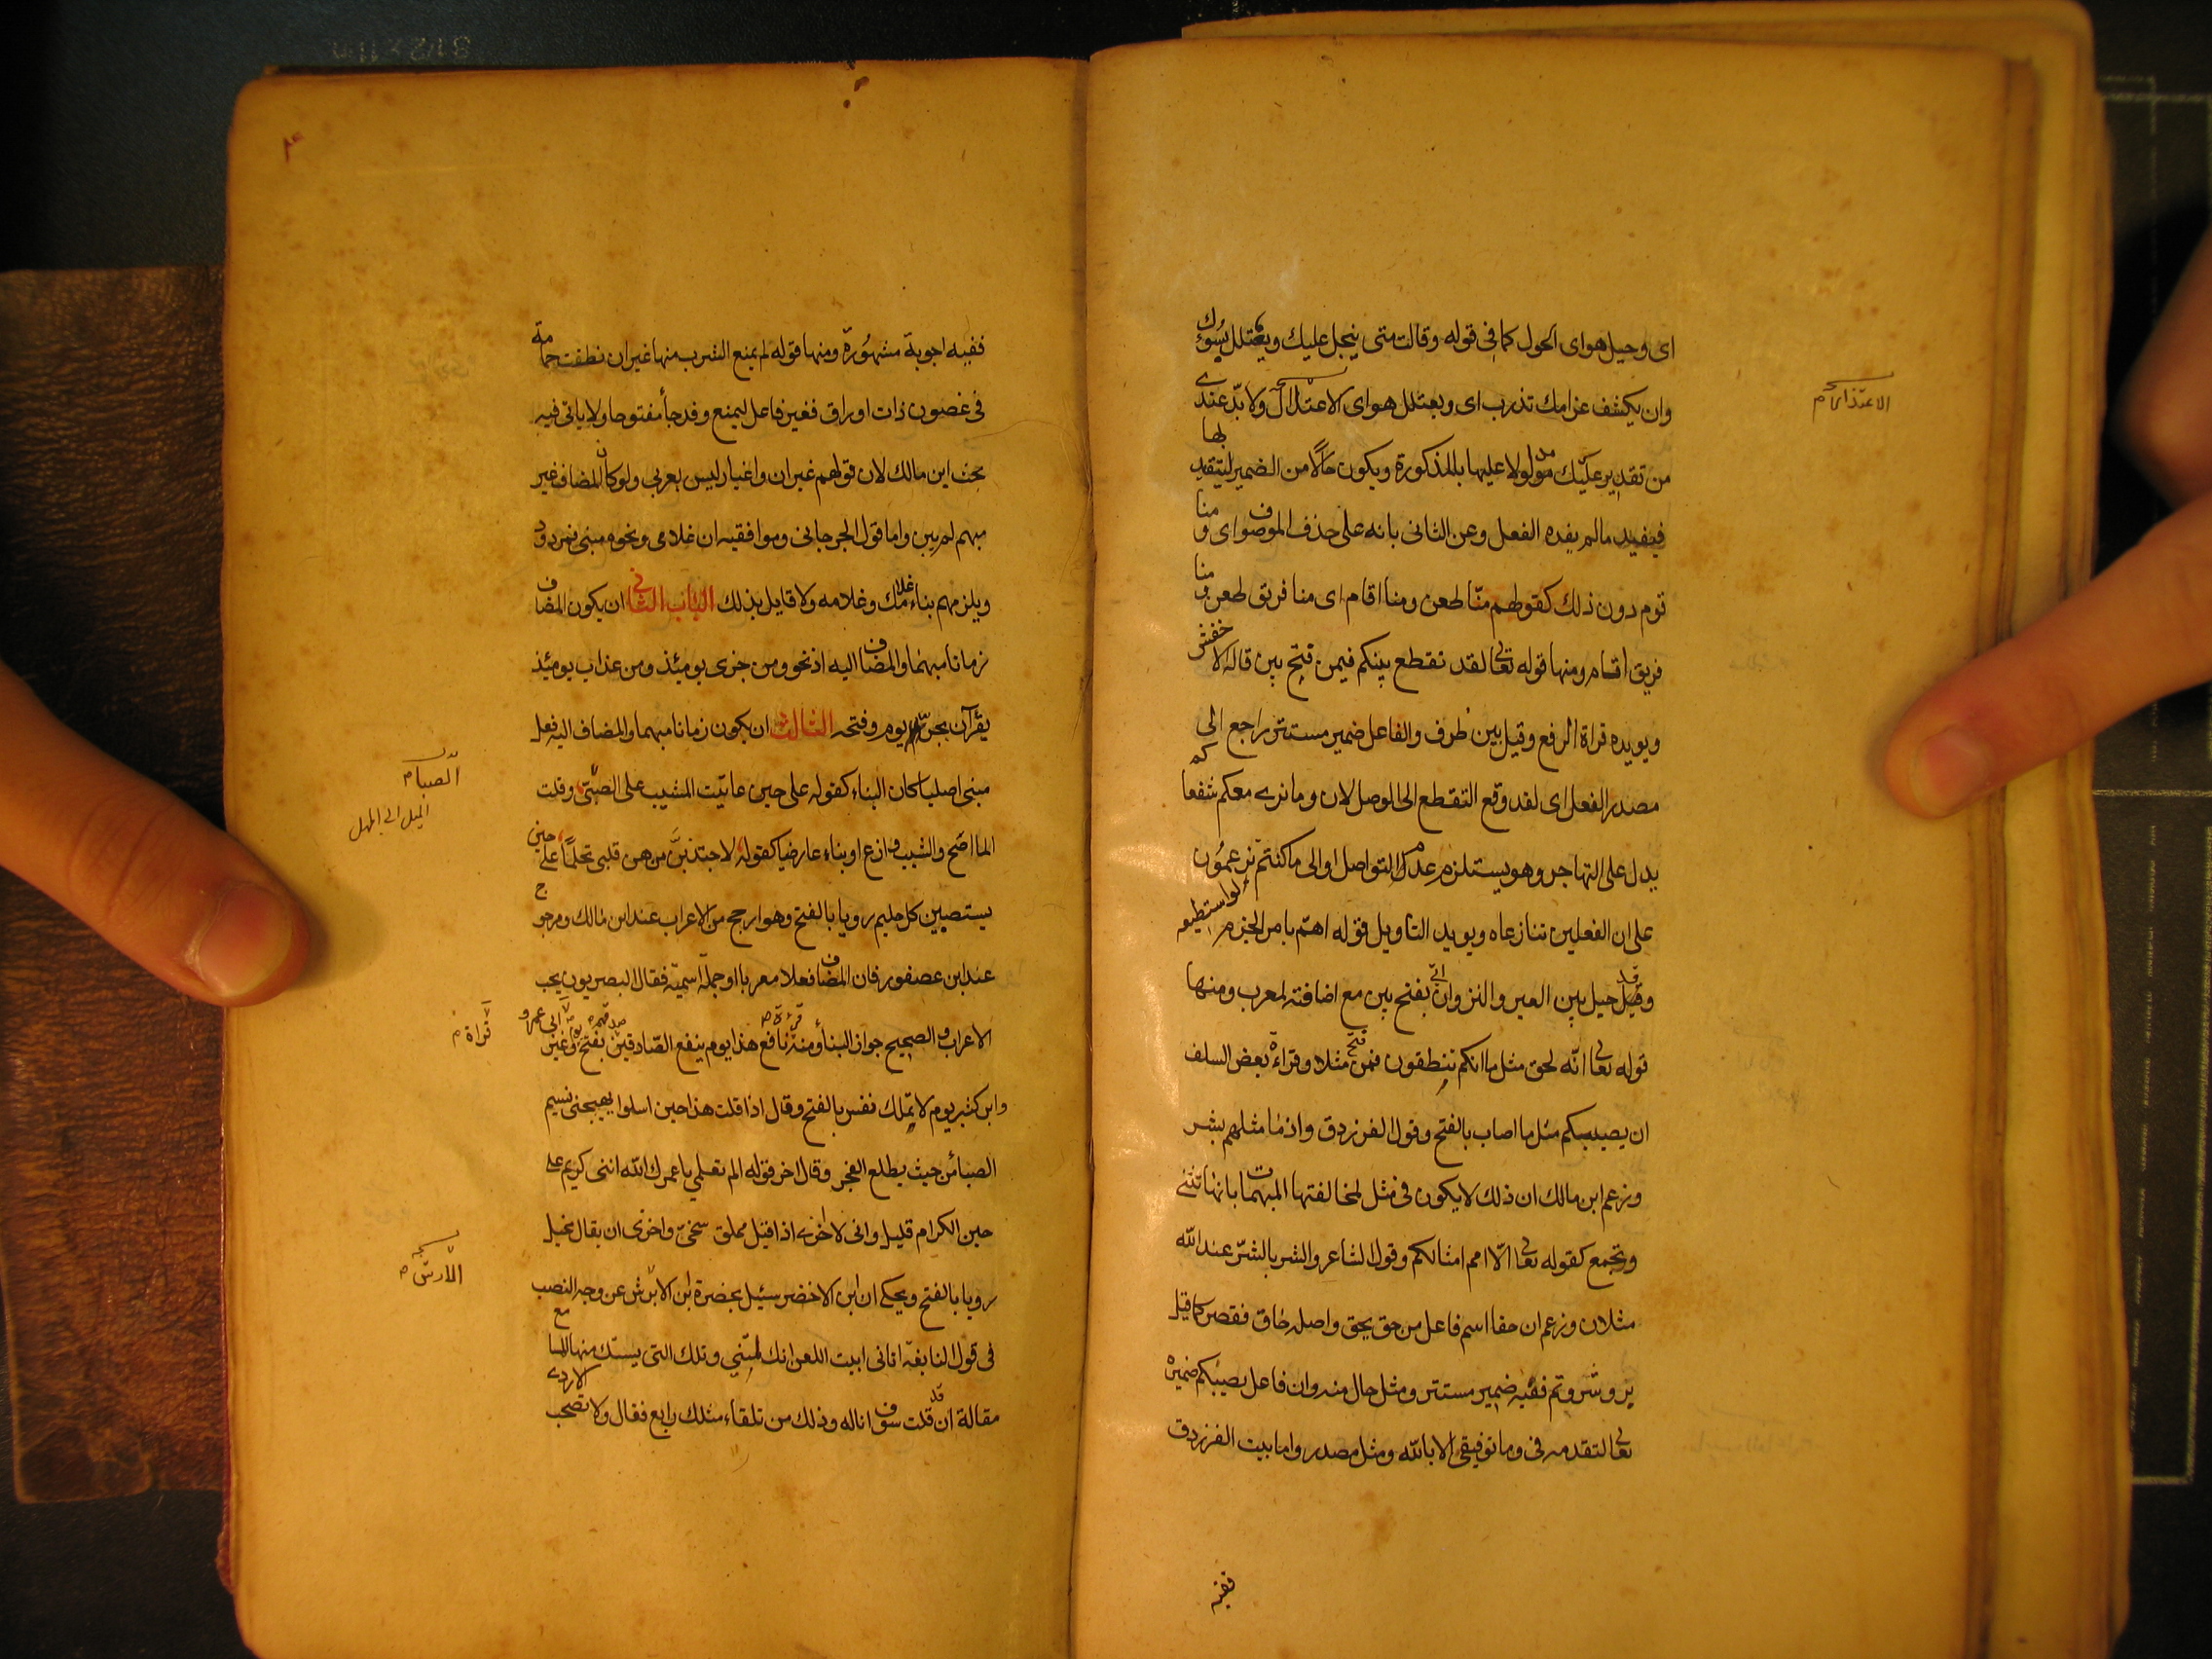 اى وحيل هو اى الحول كما فى قوله وقالت متى يبخل عليك ويعتلل يسؤك
وان يكشف غرامك تدرب اى ويعتلل هو اى الاعتلال ولا بدّ عندى
الاعتذار م
من تقدير عليك مدلولا عليها بالمذكورة ويكون حالا من الضمير ليتقيد بها
فيفيد ما لم يفده الفعل وعن الثانى بانه على حذف الموصوف اى و منا
قوم دون ذلك كقولهم منّا ظعن ومنا اقام اى منا فريق ظعن و منا
فريق اقام ومنها قوله تعالى لقد تقطع بينكم فيمن فتح بين قاله الاخفش
ويويده قراة الرفع وقيل بين ظرف والفاعل ضمير مستتر راجع الى
مصدر الفعل اى لقد وقع التقطع الى الوصل لان وما نرى معكم شفعاكم
يدل على التهاجر وهو يستلزم عدم التواصل او الى ما كنتم تزعمون
على ان الفعلين تنازعاه ويويد التاويل قوله اهمّ بامر الحزم لو استطيعه
وقد حيل بين العير والنزوان بفتح بين مع اضافته لمعرب ومنها
قوله تعالى انّه لحق مثل ما انكم تنطقون فمن فتح مثلا وقراءة بعض السلف
ان يصيبكم مثل ما اصاب بالفتح وقول الفرزدق واذ ما مثلهم بشر
وزعم ابن مالك ان ذلك لا يكون فى مثل لمخالفتها المبهمات بانها تثنى
وتجمع كقوله تعالى الّا امم امثالكم وقول الشاعر والشر بالشرّ عند الله
مثلان وزعم ان حقا اسم فاعل من حق يحق واصله حاق فقصر كما قيل
بر وسر وتم ففيه ضمير مستتر ومثل حال منه وان فاعل يصيبكم ضميره
تعالى لتقدمه فى وما توفيقى الا بالله ومثل مصدر واما بيت الفرزدق
ففيه
ففيه اجوبة مشهورة ومنها قوله لم يمنع الشرب منها غير ان نطقت حمامة
فى غصون ذات اوراق فغير فاعل ليمنع وقد جا مفتوحا ولا ياتى فيه
بحث ابن مالك لان قولهم غيران واغيار ليس بعربى ولو كان المضاف غير
مبهم لم يبن واما قول الجرجانى وموافقيه ان غلامى ونحوه مبنى فمردود
ويلزمهم بناء غلامك وغلامه ولا قايل بذلك الباب الثانى ان يكون المضاف
زمانا مبهما والمضاف اليه اذ نحو ومن خزى يومئذ ومن عذاب يومئذ
يقرآن بجرّ يوم وفتحه الثالث ان يكون زمانا مبهما والمضاف اليه فعل
مبنى اصليا كان البناء كقوله على حين عاتبت المشيب على الصبى وقلت
الصبا م
الميل الى الجهل
الما اصح والشيب وازع او بناء عارضيا كقوله لاجتذبنّ منهن قلبى تحلما على حين
يستصبين كل حليم رويا بالفتح وهو ارجح من الاعراب عند ابن مالك ومرجوح
عند ابن عصفور فان المضاف فعلا معربا او جملة اسميّة فقال البصريون يجب
الاعراب والصحيح جواز البنأ ومنه قرأة نافع هذا يوم ينفع الصّادقين صدقهم بفتح يوم وغير ابى عمرو
قراة م
وابن كثير يوم لا تملك نفس بالفتح وقال اذا قلت هذا حين اسلوا يهيجنى نسيم
الصبا من حيث يطلع الفجر وقال اخر قوله الم تعلمى يا عمرك الله اننى كريم على
حين الكرام قليل وانى لا اخزى اذا قيل مملق سخىّ واخزى ان يقال بخيل
رويا بالفتح ويحكى ان ابن الاخضر سئيل بحضرة ابن الابرش عن وجه النصب
الابرش م
فى قول النابغة اتانى ابيت اللعن انك لمتنى وتلك التى يستك منها المسامع
مقالة ان قد قلت سوف اناله وذلك من تلقاء مثلك رابع فقال ولا تصحب الاردى